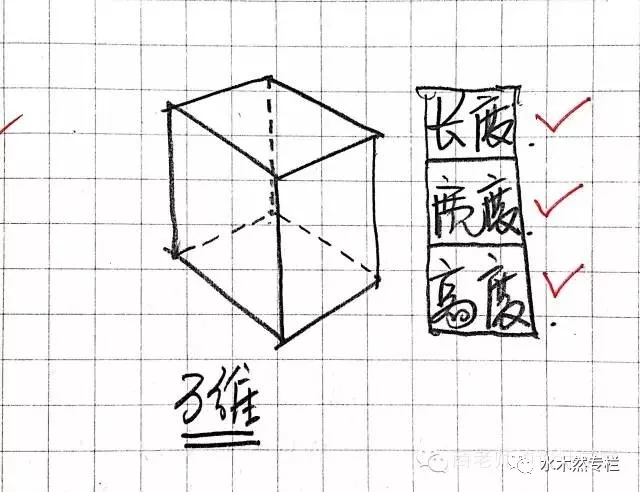 长度.
宽度.
高度.
3维
水木然专栏